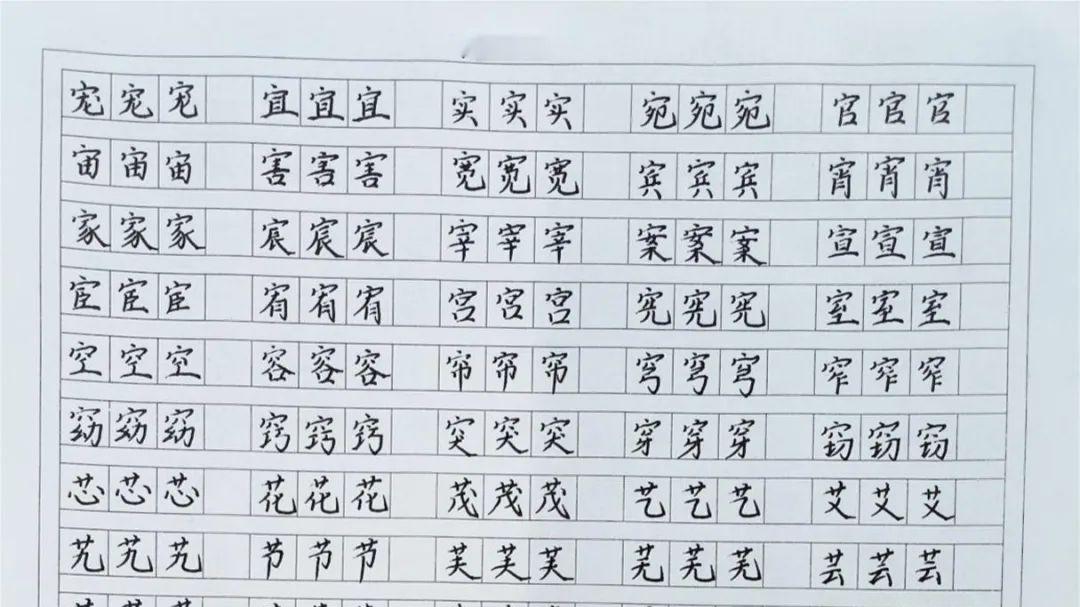 宠宠宠 宜宜宜 实实实 宛宛宛 官官官
宙宙宙 害害害 宽宽宽 宾宾宾 宵宵宵
家家家 宸宸宸 宰宰宰 案案案 宣宣宣
宦宦宦 宥宥宥 宫宫宫 宪宪宪 室室室
空空空 容容容 帘帘帘 穹穹穹 窄窄窄
窈窈窈 窍窍窍 突突突 穿穿穿 窃窃窃
芯芯芯 花花花 茂茂茂 艺艺艺 艾艾艾
艽艽艽 节节节 芙芙芙 芜芜芜 芸芸芸